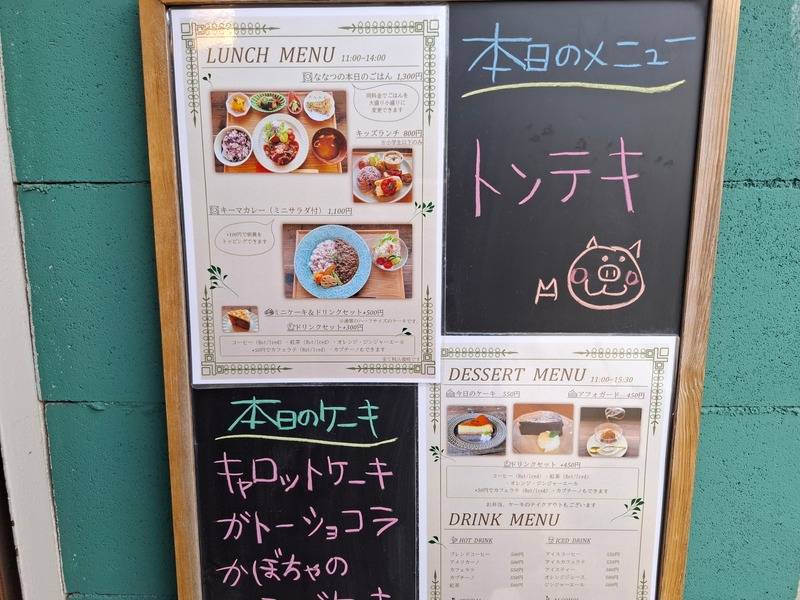 LUNCH MENU 11:00~14:00
ななつの本日のごはん 1,300円
同料金でごはんを
大盛り小盛りに
変更できます
キッズランチ 800円
※小学生以下のみ
キーマカレー（ミニサラダ付） 1,100円
トッピングできます
ミニケーキ＆ドリンクセット+500円
ドリンクセット+300円
コーヒー（Hot/Iced）・紅茶（Hot/Iced）・オレンジ・ジンジャーエール
+50円でカフェラテ（Hot/Iced）・カプチーノもできます
本日のメニュー
トンテキ
本日のケーキ
キャロットケーキ
ガトーショコラ
かぼちゃの
DESSERT MENU 11:00~15:30
今日のケーキ 550円
アフォガード 450円
ドリンクセット +450円
コーヒー（Hot/Iced）・紅茶（Hot/Iced）
・オレンジ・ジンジャーエール
+50円でカフェラテ（Hot/Iced）・カプチーノもできます
お弁当、ケーキのテイクアウトもございます
DRINK MENU
HOT DRINK
ブレンドコーヒー
アメリカーノ
カフェラテ
カプチーノ
紅茶
ICED DRINK
アイスコーヒー
アイスカフェラテ
アイスティー
オレンジジュース
ジンジャーエール